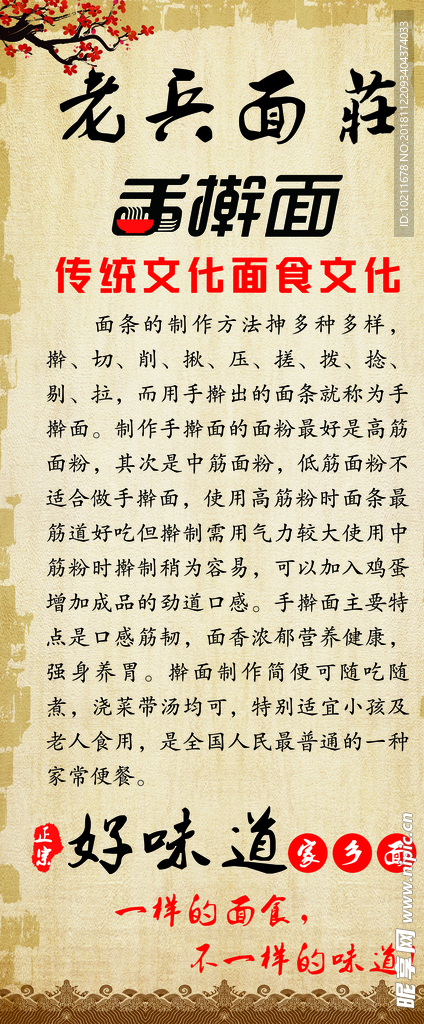 老兵面莊
手擀面
传统文化面食文化
面条的制作方法抻多种多样，
擀、切、削、揪、压、搓、拨、捻、
剔、拉，而用手擀出的面条就称为手
擀面。制作手擀面的面粉最好是高筋
面粉，其次是中筋面粉，低筋面粉不
适合做手擀面，使用高筋粉时面条最
筋道好吃但擀制需用气力较大使用中
筋粉时擀制稍为容易，可以加入鸡蛋
增加成品的劲道口感。手擀面主要特
点是口感筋韧，面香浓郁营养健康，
强身养胃。擀面制作简便可随吃随
煮，浇菜带汤均可，特别适宜小孩及
老人食用，是全国人民最普通的一种
家常便餐。
正宗
好味道
家乡面
一样的面食，
不一样的味道
ID:10211678 NO:20181122093404374033
昵享网 www.nipic.cn